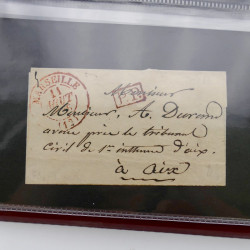 MARSEILLE
11
AOUT
P.P.
Monsieur
Monsieur, A. Durand
avoué près le tribunal
Civil de 1re instance d'aix.
à aix